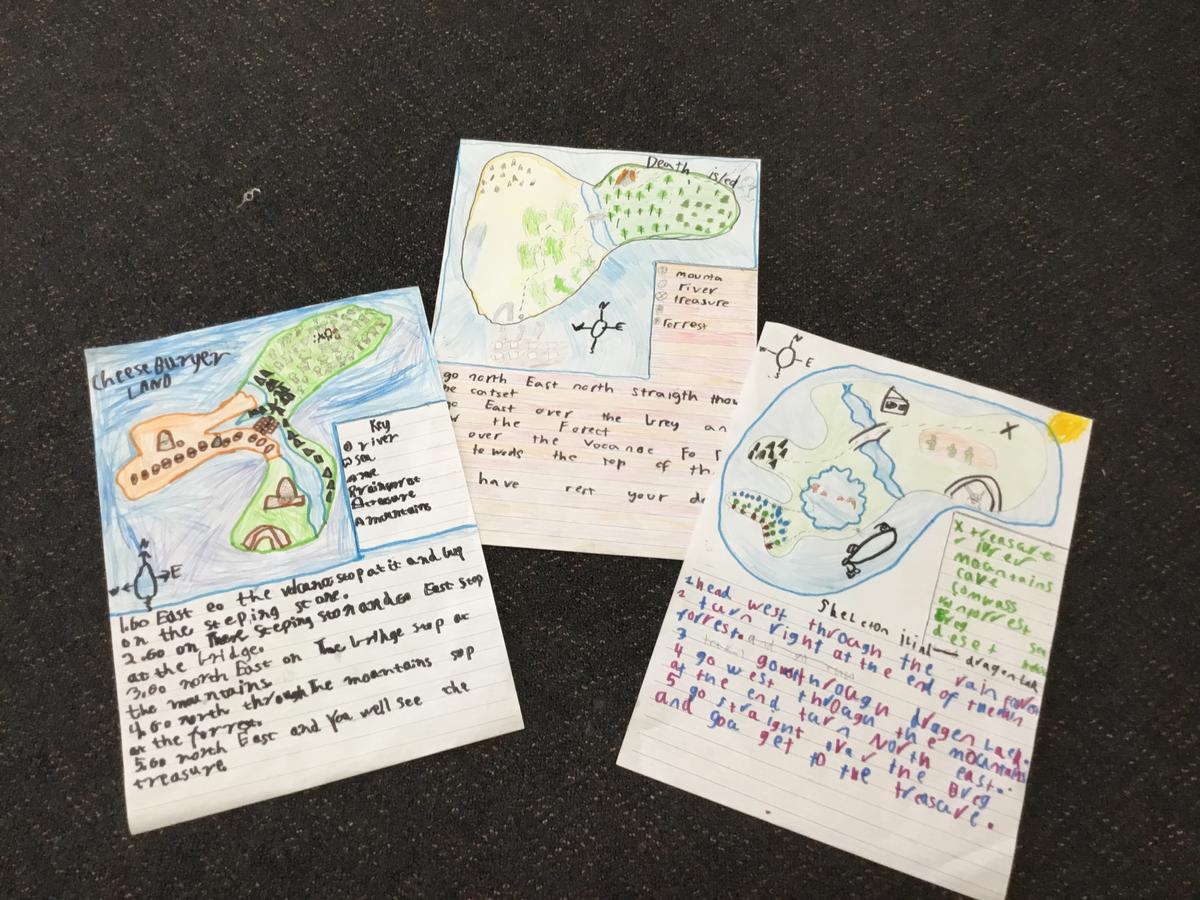 CheeseBurger
LAND
Key
river
sea
Rainforest
treasure
mountains
N
E
1.Go East to the volcano stop at it and
on the steping stone.
2.Go on There steping ston and Go East stop
at the bridge.
3.Go north East on The bridge stop at
the mountains.
4.Go north through The mountains stop
at the forrest.
5.Go north East and You well see the
treasure
Death isled
mounta
river
treasure
forrest
N
W
E
S
go north East north straigth thow
he catset
East over the brey an
the Forest
over the Vocanoe Fo
to wods the top of th
have rest your de
N
E
S
X
X treasure
river
mountains
cave
compass
Breg
deset
Skeleton
dragen Lack
1 head west through the rain forrest
2 turn right at the end of the rain
forrest
3 go through dragen Lack.
4 go west through the mountains
at the end turn North east.
5 go straignt over the Breg
and goa get to the treasure.